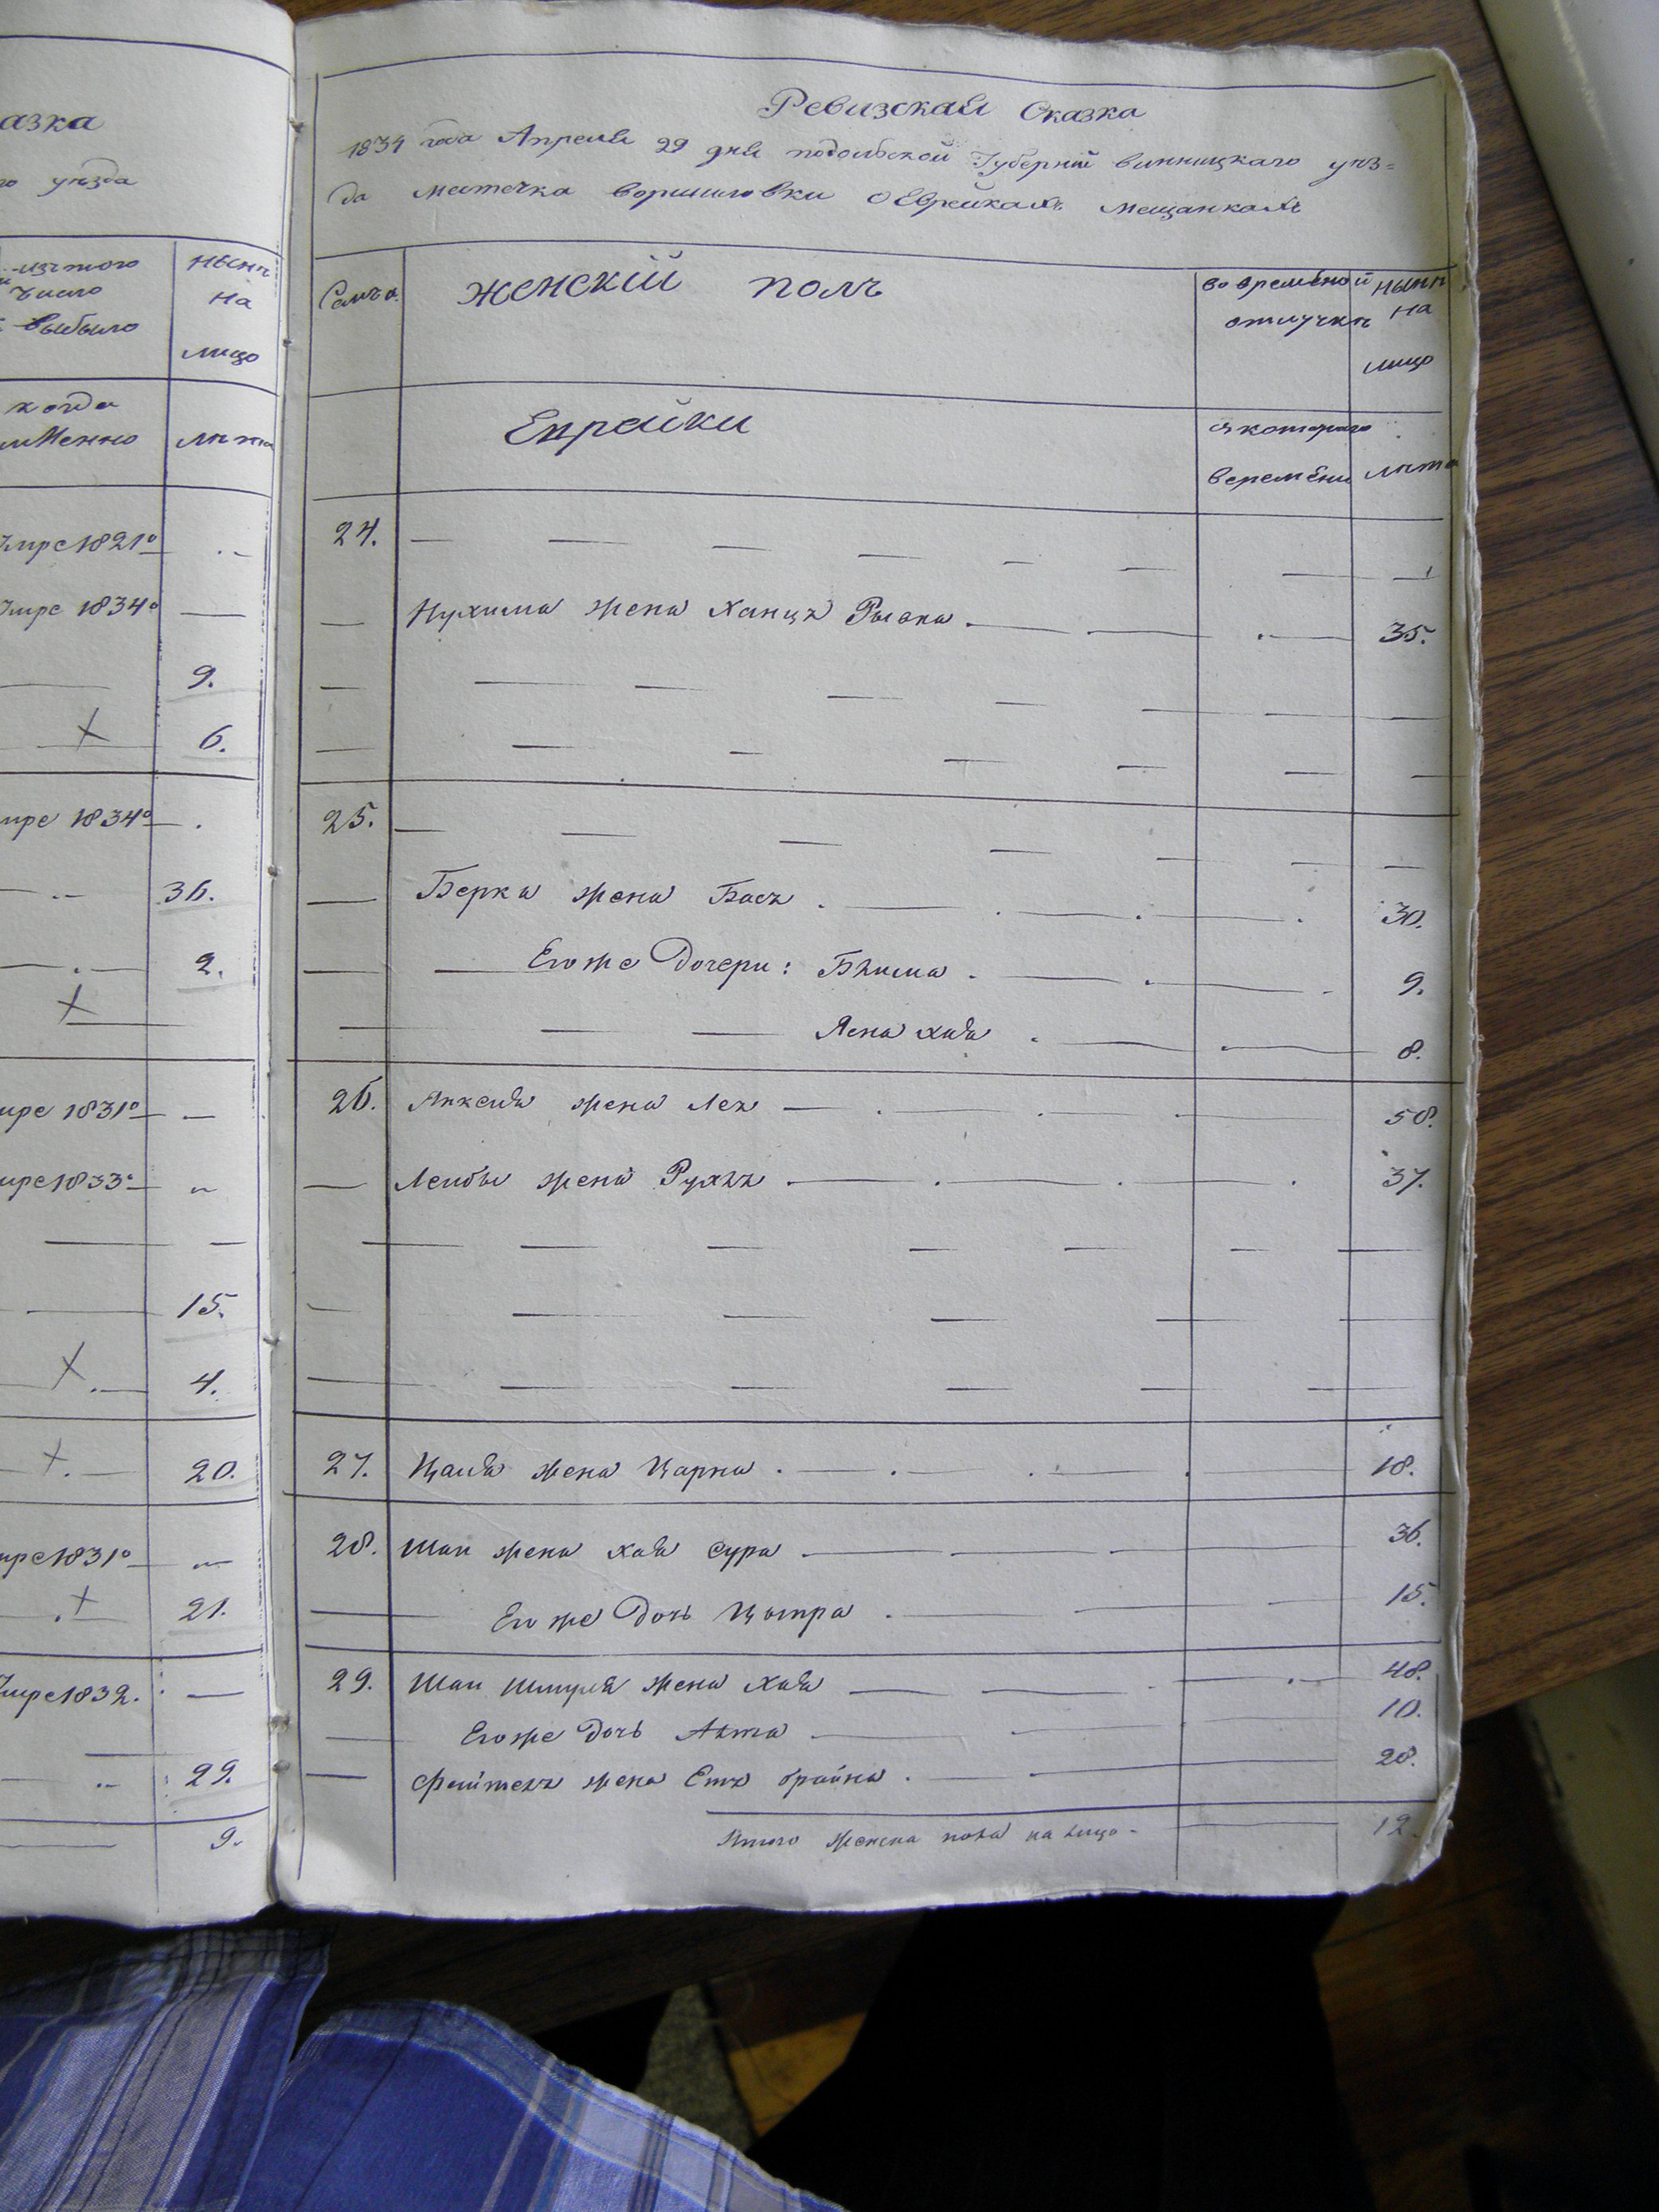 азка
го уѣзда
изъ того
число
выбыло
нынѣ
на
лицо
когда
именно
лѣта
Умре 1821º
Умре 1834º —
— 9.
— 6.
Умре 1834º — .
— 36.
— 2.
Умре 1831º —
Умре 1833º —
— 15.
— 4.
— 20.
Умре 1831º —
— 21.
Умре 1832. —
— 29.
— 9.
Ревизская Сказка
1834 года Апреля 29 дня подольской Губерній винницкаго уѣз=
да местечка ворошиловки о Еврейкахъ мещанкахъ
Семъа. женскій полъ во времѣной отлучкѣ нынѣ на лицо
Еврейки с котораго времѣни лѣта
24. — — — — — —
— Нухима жена Ханця Рывка . — — 35.
— — — — — —
— — — — — —
25. — — — — — —
— Берка жена Бася . — — 30.
— Его же Дочери: Бѣима . — 9.
— — — Ясна хая . — 8.
26. Янкеля жена Лея — 58.
— Лейбы жена Рухля . — 37.
— — — — — —
— — — — — —
— — — — — —
27. Цаля жена Царна . — 18.
28. Шаи жена хая сура — 36.
— Его же Дочь Цыпра . — 15.
29. Шаи Шмуля жена Хая — 48.
— Его же Дочь — 10.
— Файтеля жена Етя брайна . — 28.
Итого женска пола на лицо - — 12.